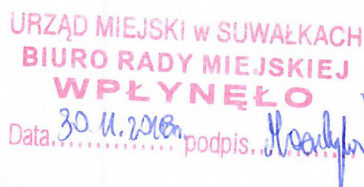 URZĄD MIEJSKI w SUWAŁKACH
BIURO RADY MIEJSKIEJ
WPŁYNĘŁO
Data 30.11.2018r. podpis